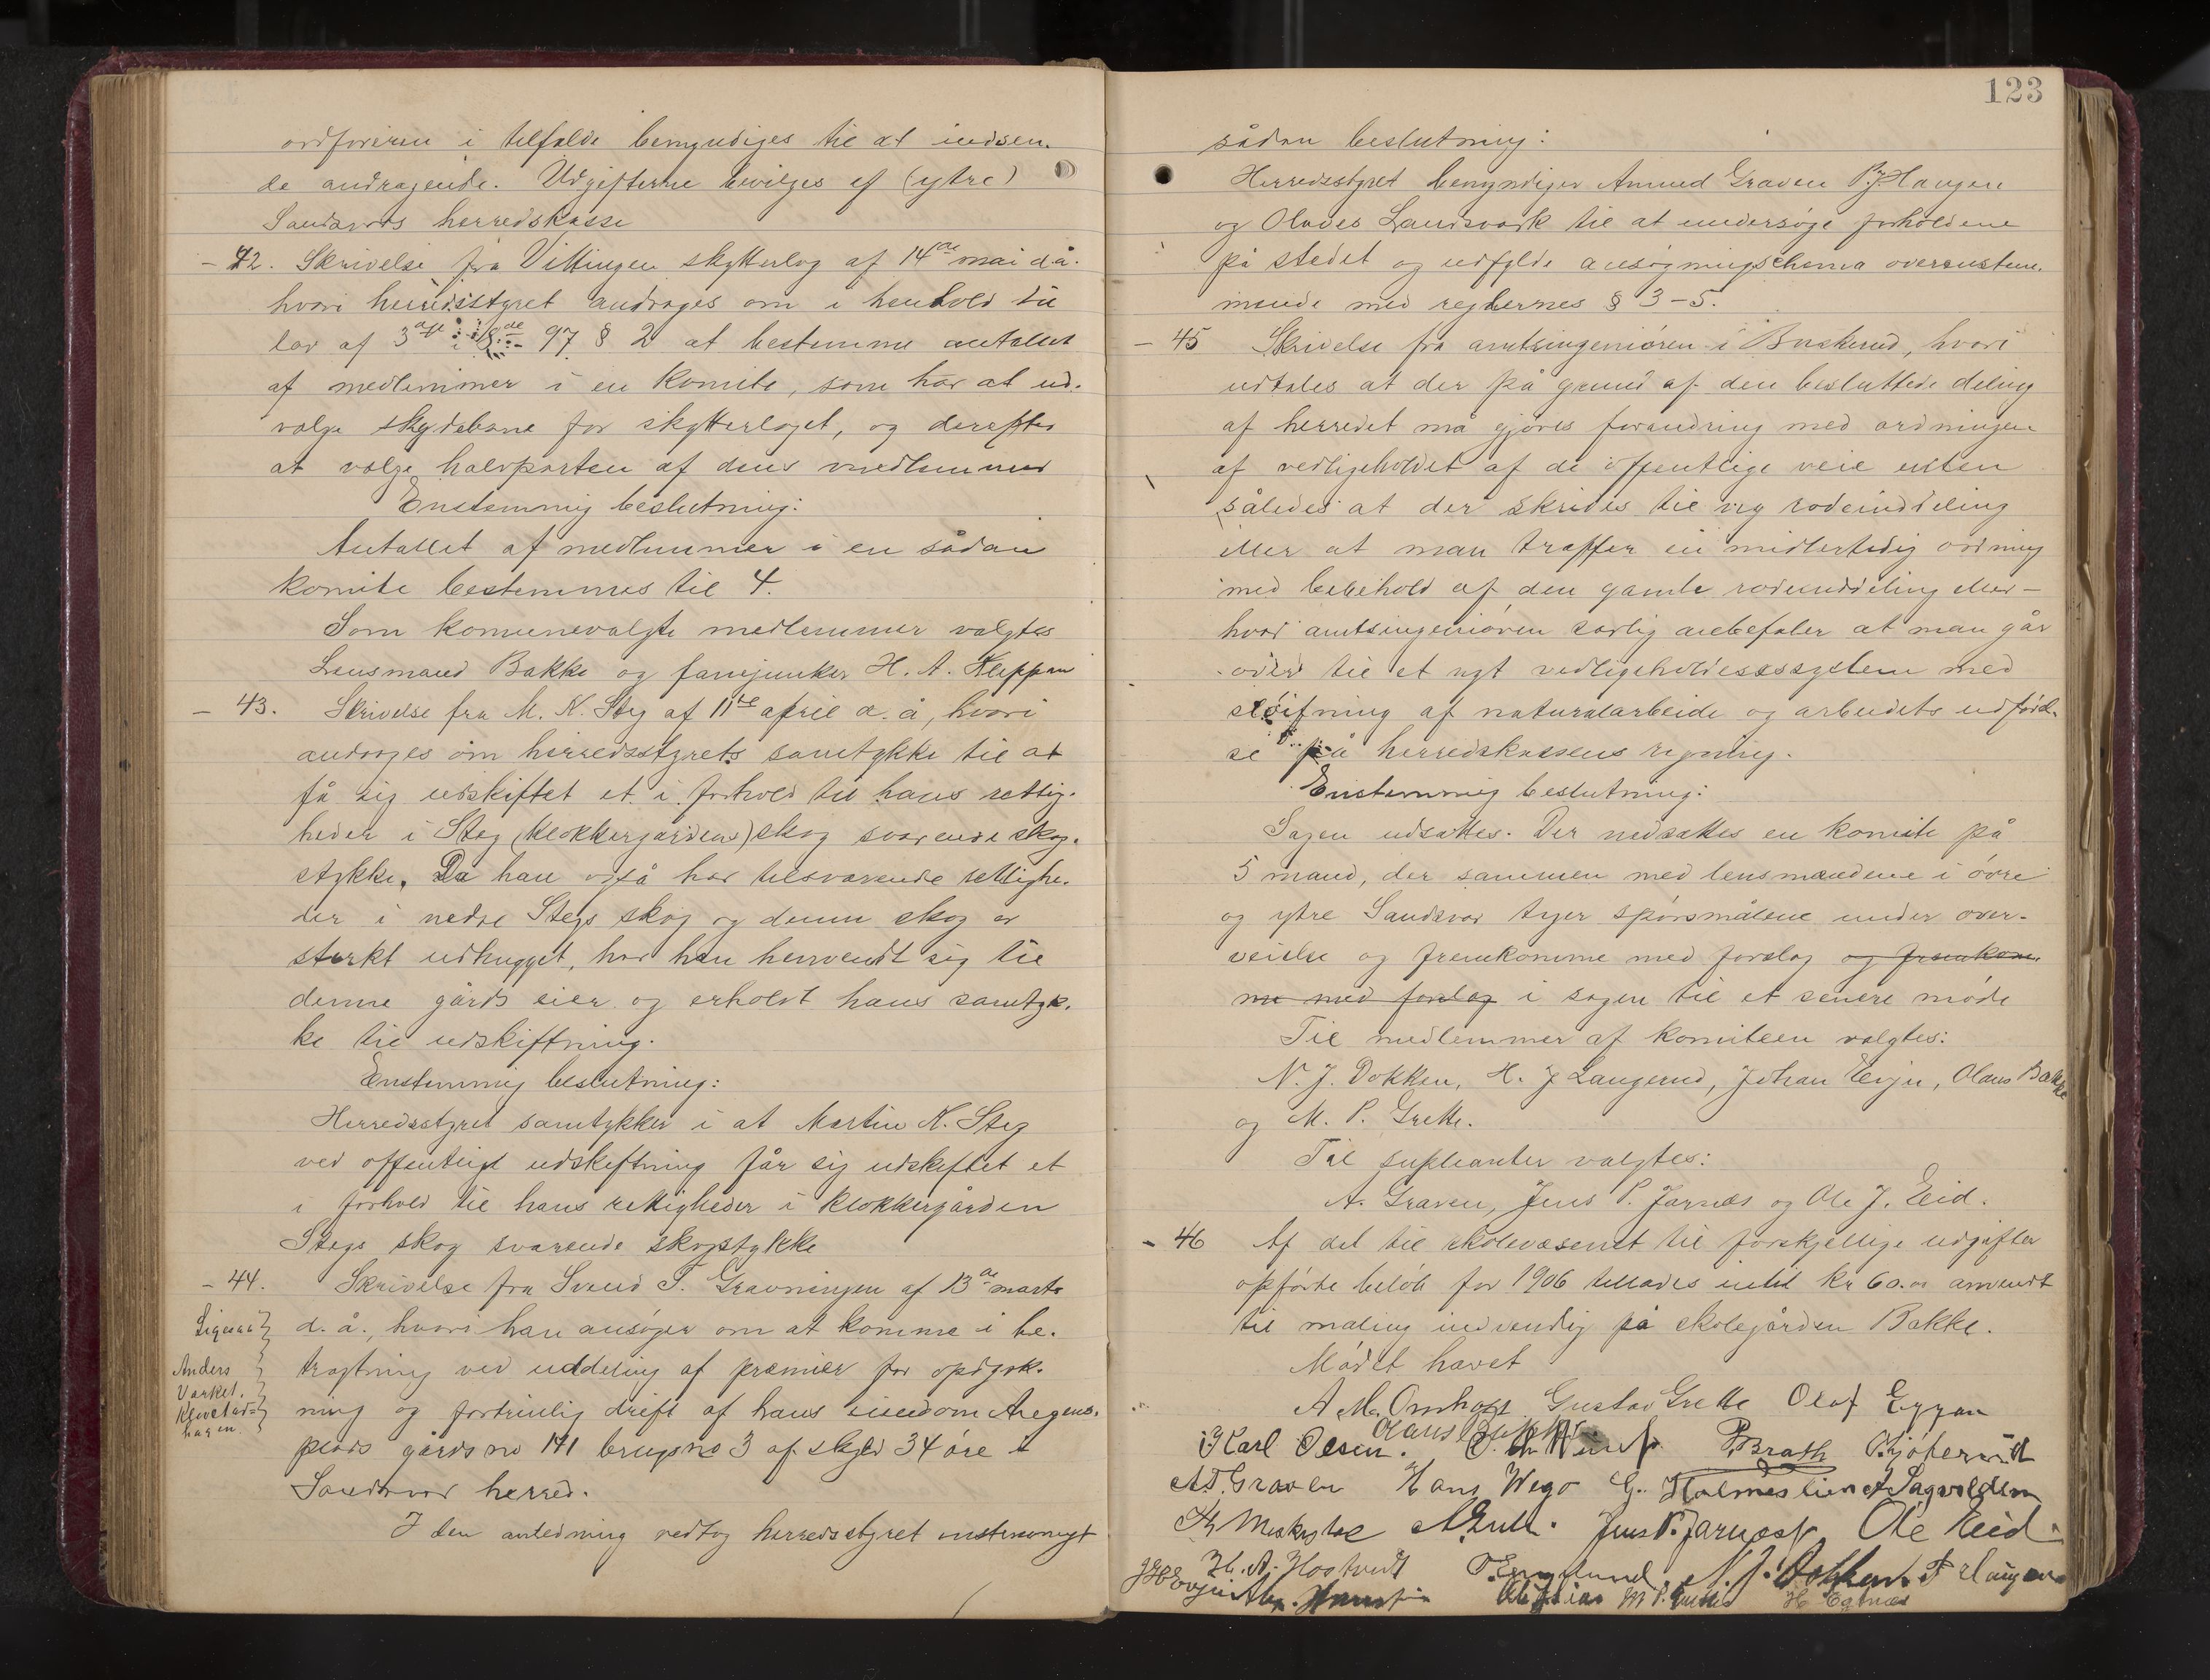 ordføreren i tilfælde bemyndiges til at indsen-
de andragende. Udgifterne bevilges af (ytre)
Sandsværs herredskasse
- 42. Skrivelse fra Vittingen skytterlag af 14de mai d.å.
hvori herredsstyret andrages om i henhold til
lov af 3die 97 § 2 at bestemme antallet
af medlemmer i en komite, som har at ud-
vælge skydebane for skytterlaget, og derefter
at vælge halvparten af dens medlemmer
Enstemmig beslutning:
Antallet af medlemmer i en sådan
komite bestemmes til 4.
Som komunevalgte medlemmer valgtes
Lensmand Bakke og fanejunker H. A. Kleppen
- 43. Skrivelse fra M. N. Steg af 11te april d. å, hvori
andrages om herredsstyrets samtykke til at
få sig udskiftet et i forhold til hans rettig-
heder i Steg (Klokkergårdens) skog svarende skog-
stykke. Da han også har tilsvarende rettighe-
der i nedre Stegs skog og denne skog er
stærkt udhugget, har han henvendt sig til
denne gårds eier og erholdt hans samtyk-
ke til udskiftning.
Enstemmig beslutning:
Herredsstyret samtykker i at Martin N. Steg
ved offentligt udskiftning får sig udskiftet et
i forhold til hans rettigheder i Klokkergården
Stegs skog svarende skogstykke
- 44. Skrivelse fra Svend T. Gravningen af 13de marts
Ligesaa
d. å., hvori han ansøger om at komme i be-
Anders
tragtning ved uddeling af præmier for opdyrk-
ning og fortrinlig drift af hans eiendom Aregens-
hagen.
plads gårds no 141 brugs no 3 af skyld 34 øre i
Sandsvær herred.
I den anledning vedtog herredsstyret enstemmigt
123
sådan beslutning:
Herredsstyret bemyndiger Amund Graven P. J. Haugen
og Olaves Landsværk til at undersøge forholdene
på stedet og udfylde ansøgningschema overenstem-
mende med reglernes § 3-5.
- 45 Skrivelse fra amtsingeniøren i Buskerud, hvori
udtales at der på grund af den besluttede deling
af herredet må gjøres forandring med ordningen
af vedligeholdet af de offentlige veie enten
således at der skrides til ny rodeinddeling
eller at man træffer en midlertidig ordning
med bebehold af den gamle rodeinddeling eller -
hvad amtsingeniøren særlig anbefaler at man går
over til et nyt vedligeholdessystem med
sløifning af naturalarbeide og arbeidets udførel-
se på herredskassens regning.
Enstemmig beslutning:
Sagen udsættes. Der nedsættes en komite på
5 mand, der sammen med lensmændene i øvre
og ytre Sandsvær tager spørsmålene under over-
veielse og fremkomme med forslag og fremkom-
me med forslag i sagen til et senere møde
Til medlemmer af komiteen valgtes:
N. J. Dokken, H. J Langerud, Johan Evju, Olaus Bakke
og M. P. Grette.
Til supleanter valgtes:
A. Graven, Jens P. Jarnæs og Ole J. Eid.
- 46 Af det til skolevæsenet til forskjellige udgifter
opførte beløb for 1906 tillades indtil kr 60.00 anvendt
til maling indvendig på skolegården Bakke.
Mødet hævet
A M. Omholt Gustav Grette Olaf Eggan
Olaus Bakke
Karl Olsen. P. Brath
A T. Graven Hans Wego G. Holmeslien A Sagvolden
Jens P. Jarnæs Ole Eid
H. A. Hostvedt T. Englund. N. J. Dokken
M P. Grette